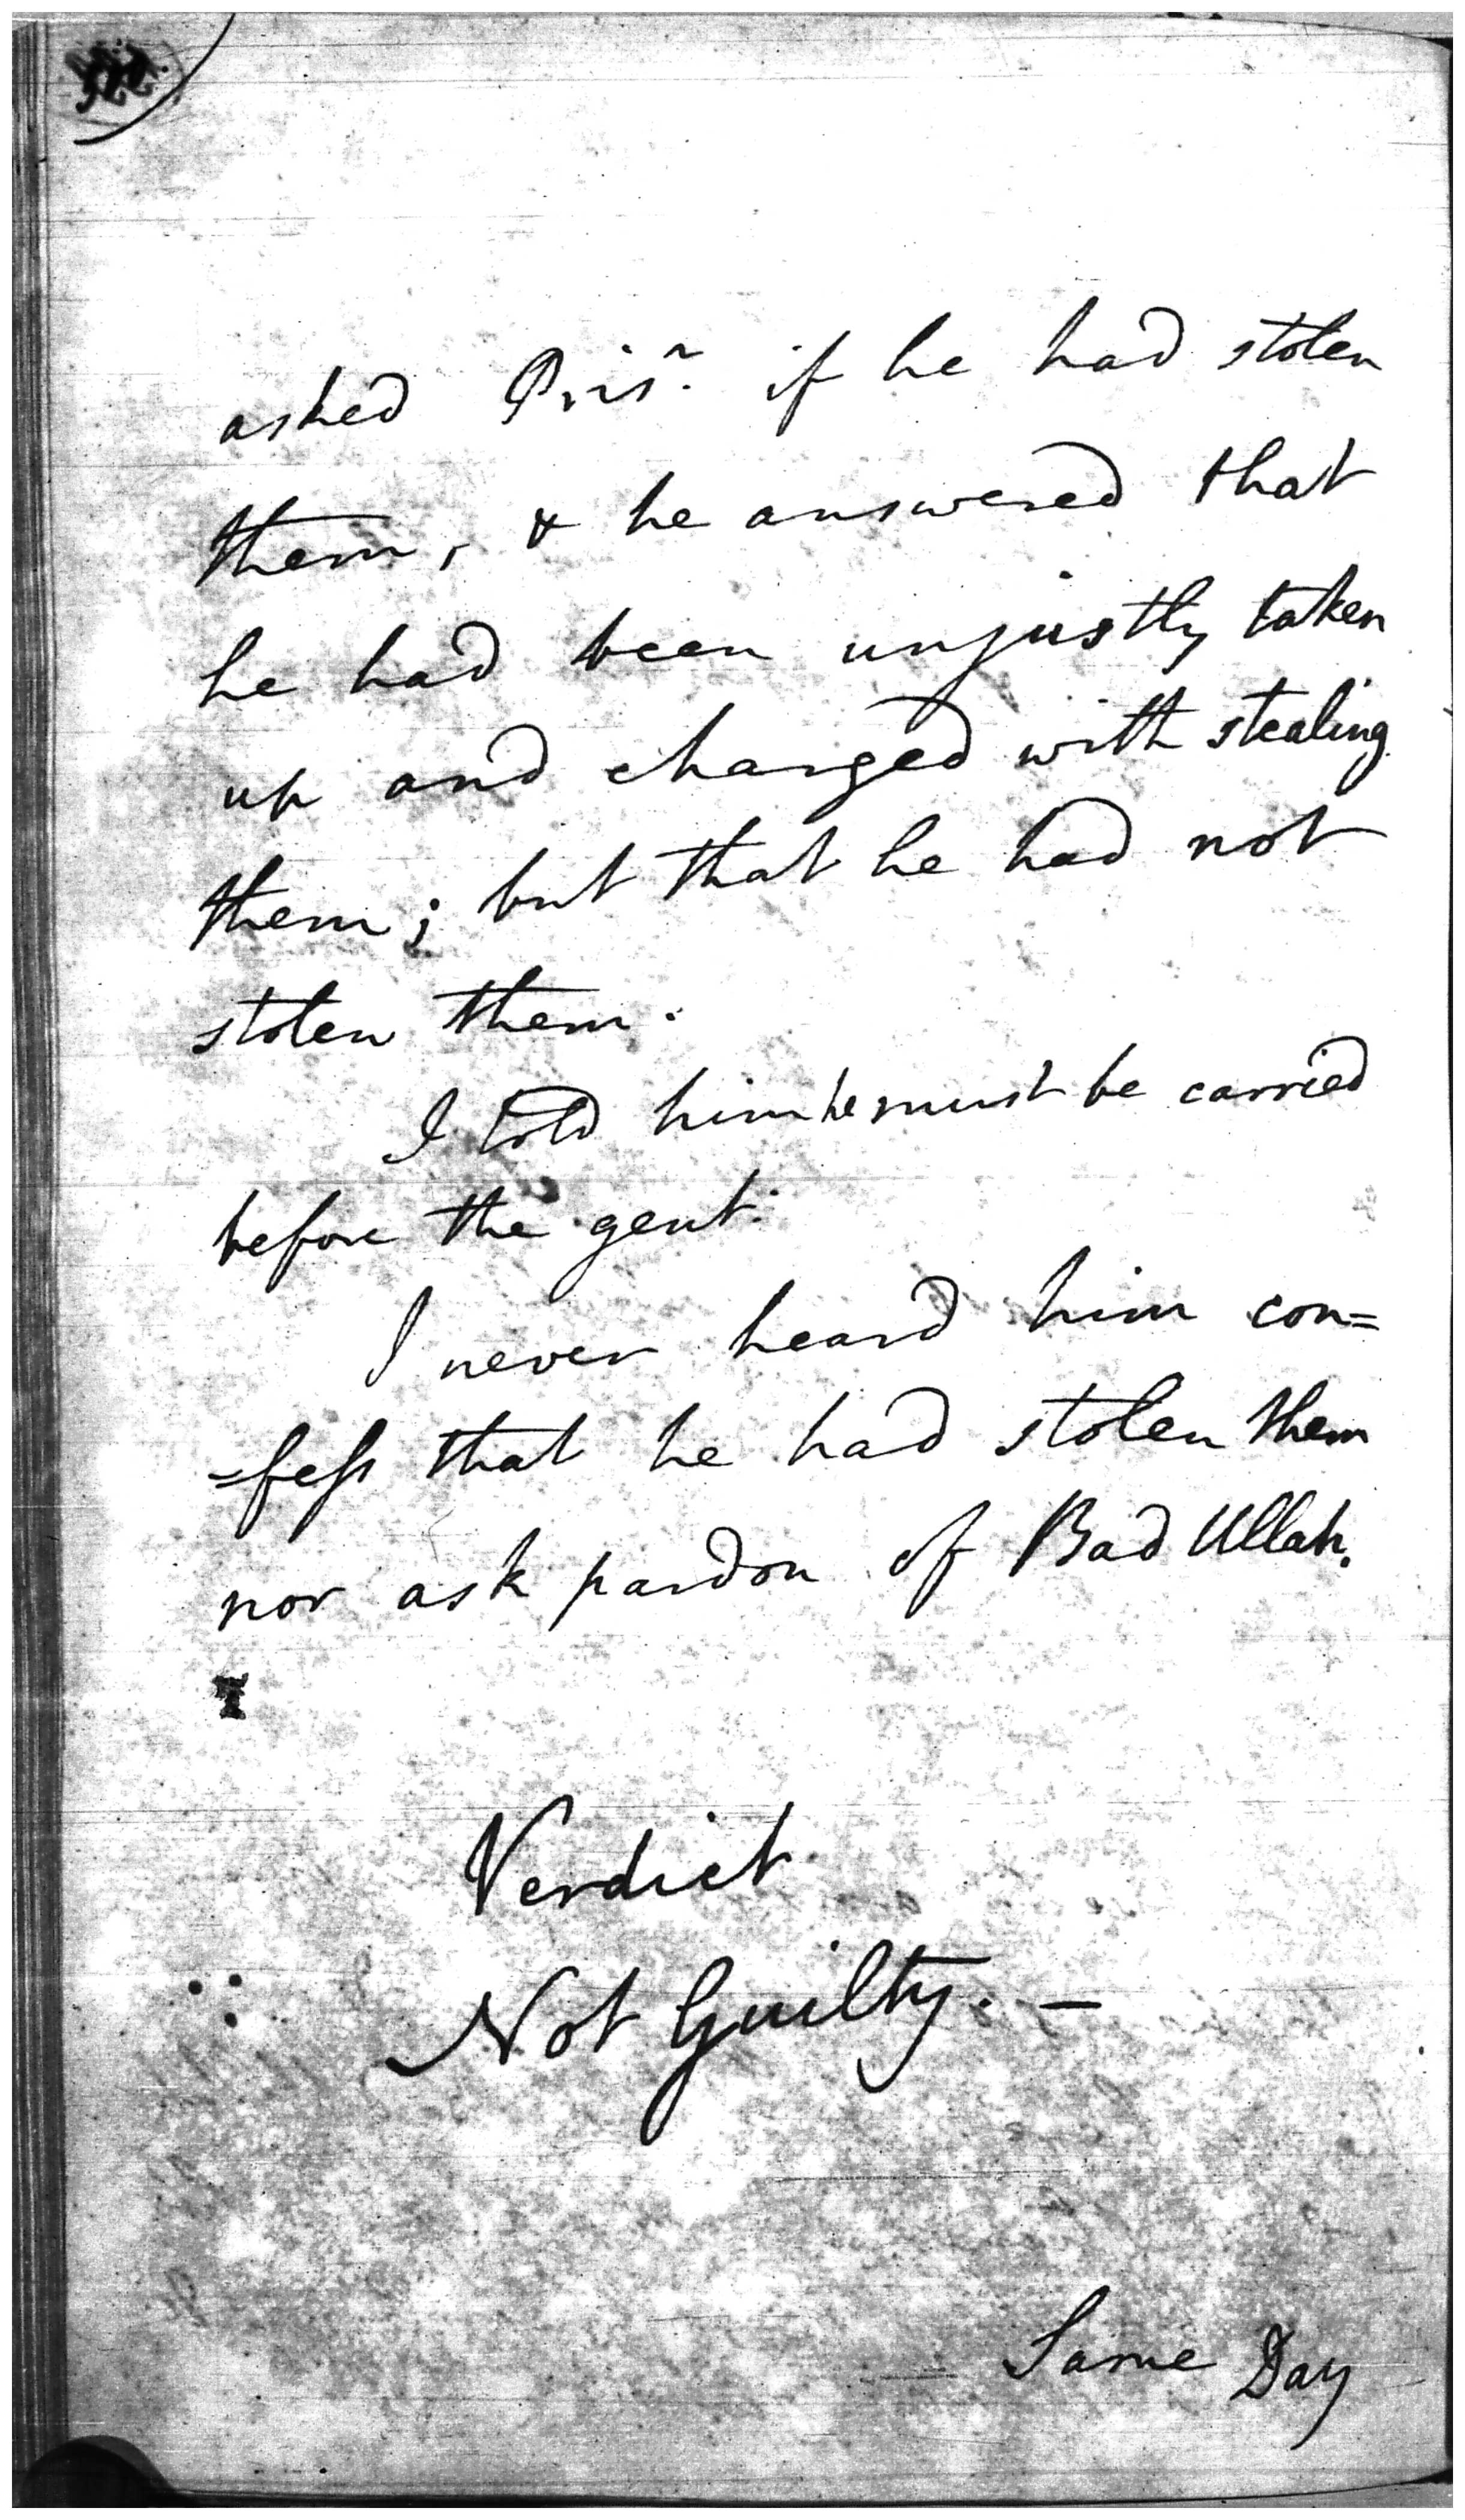 asked Prisr. if he had stolen
them, & he answered that
he had been unjustly taken
up and charged with stealing
them; but that he had not
stolen them.
I told him he must be carried
before the gent:
I never heard him con=
=fess that he had stolen them
nor ask pardon of Bad Ullah.
Verdict
Not Guilty. —
Same Day